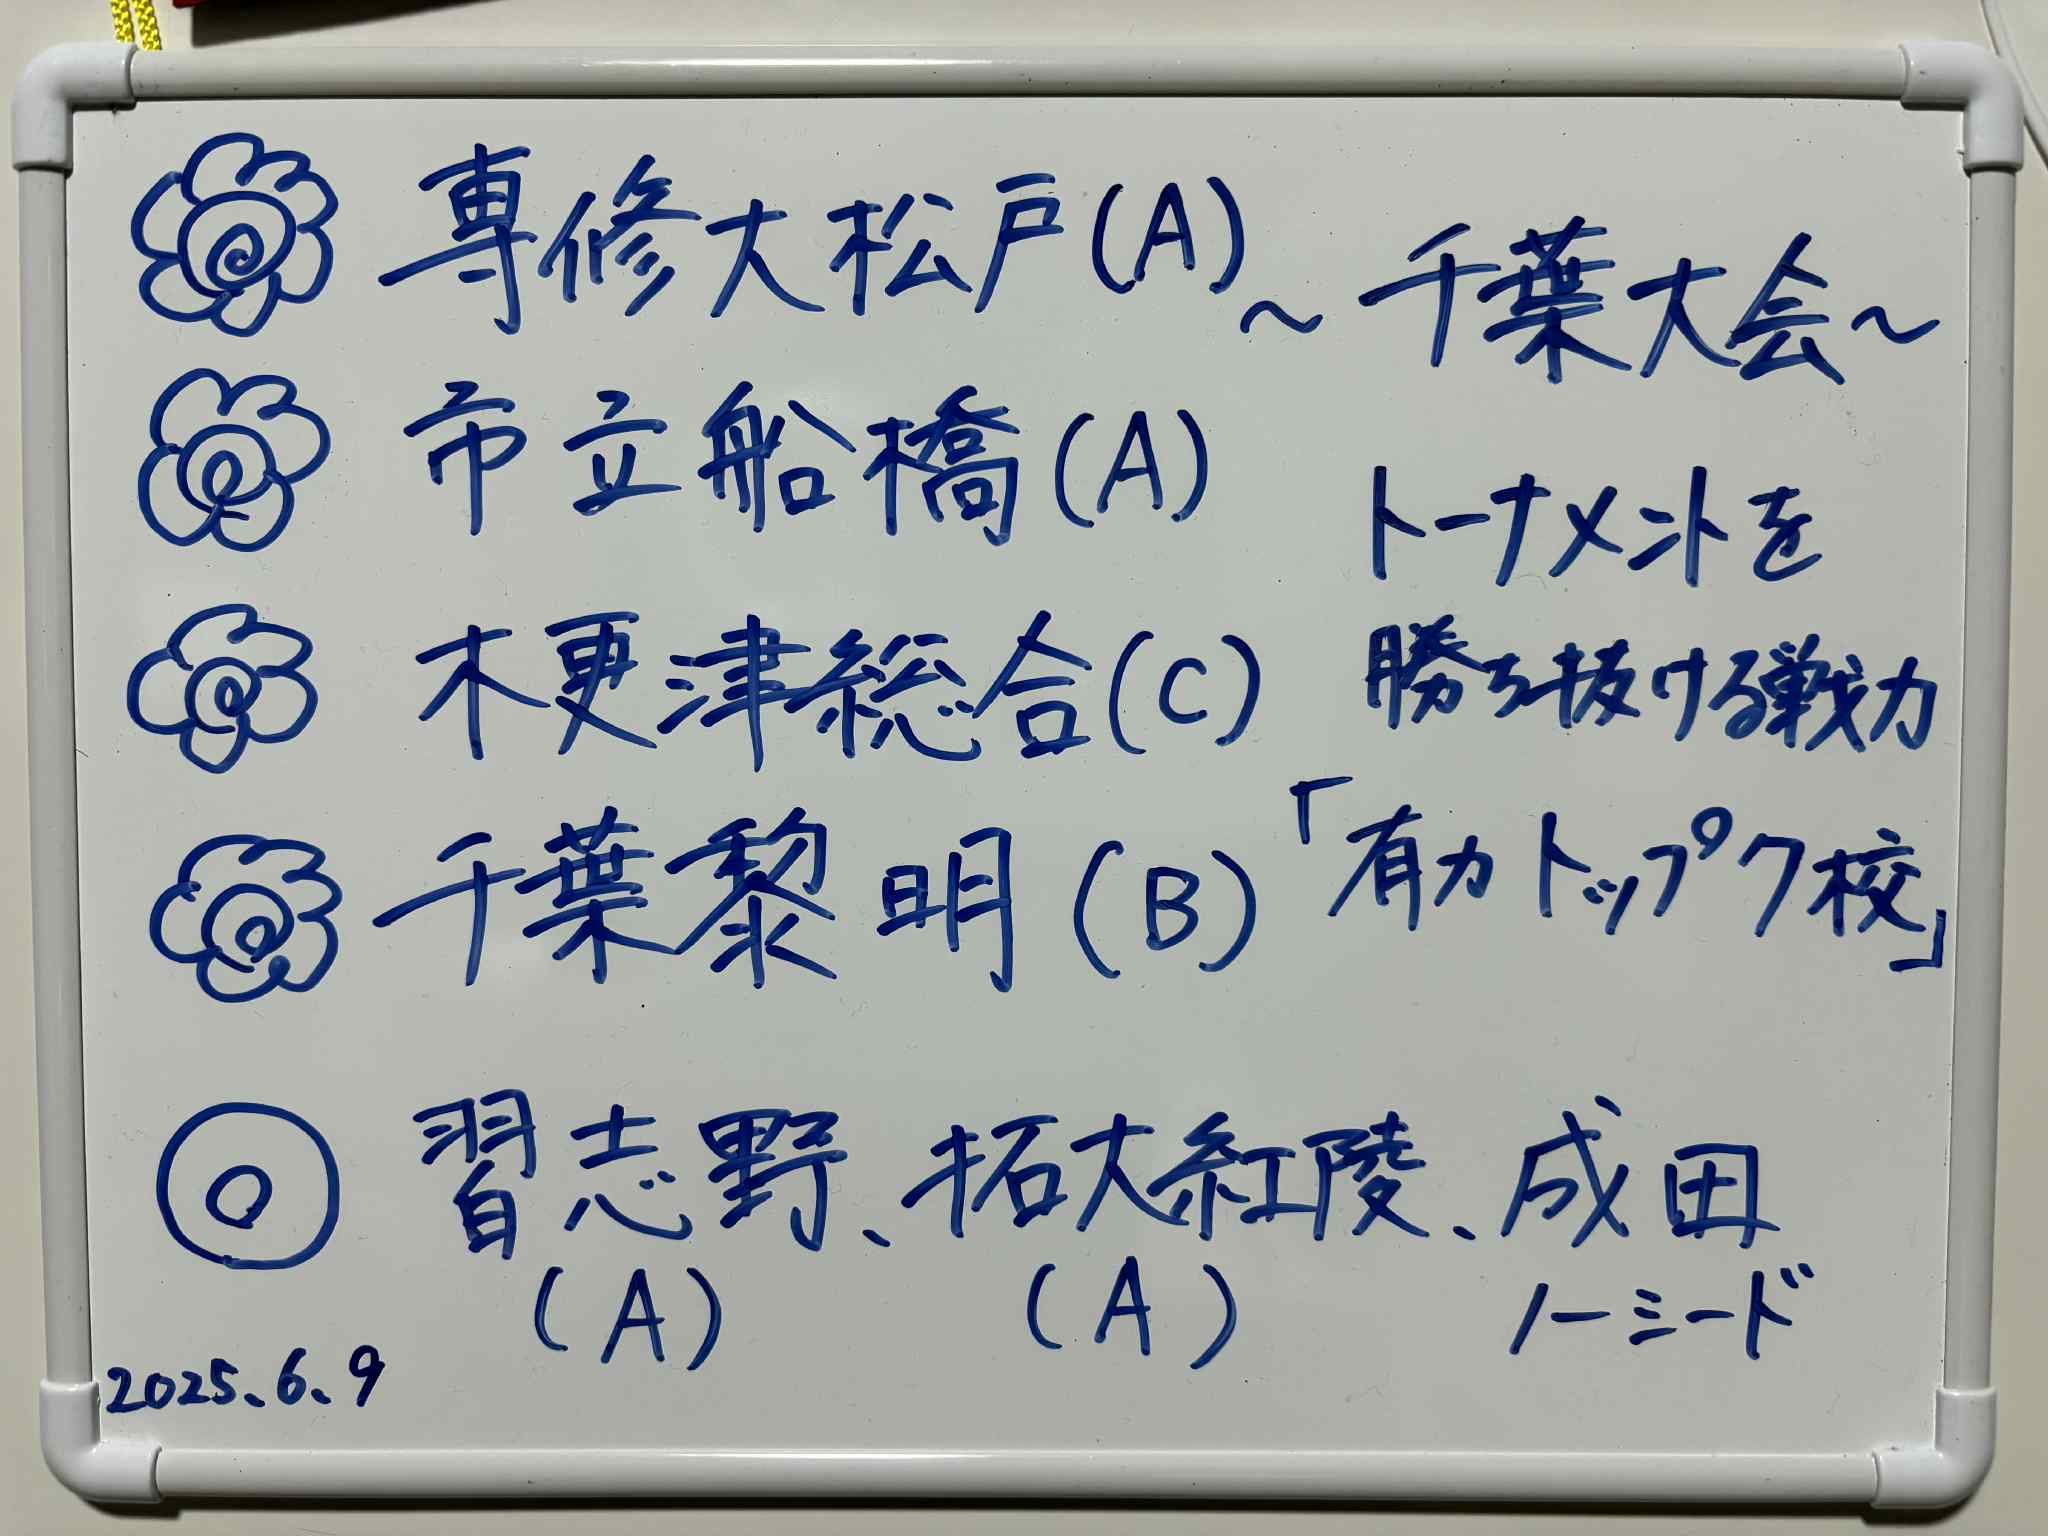 専修大松戸(A)
～千葉大会～
市立船橋(A)
トーナメントを
木更津総合(C)
勝ち抜ける戦力
千葉黎明(B)
「有力トップ7校」
◎ 習志野、拓大紅陵、成田
(A) (A) ノーシード
2025.6.9